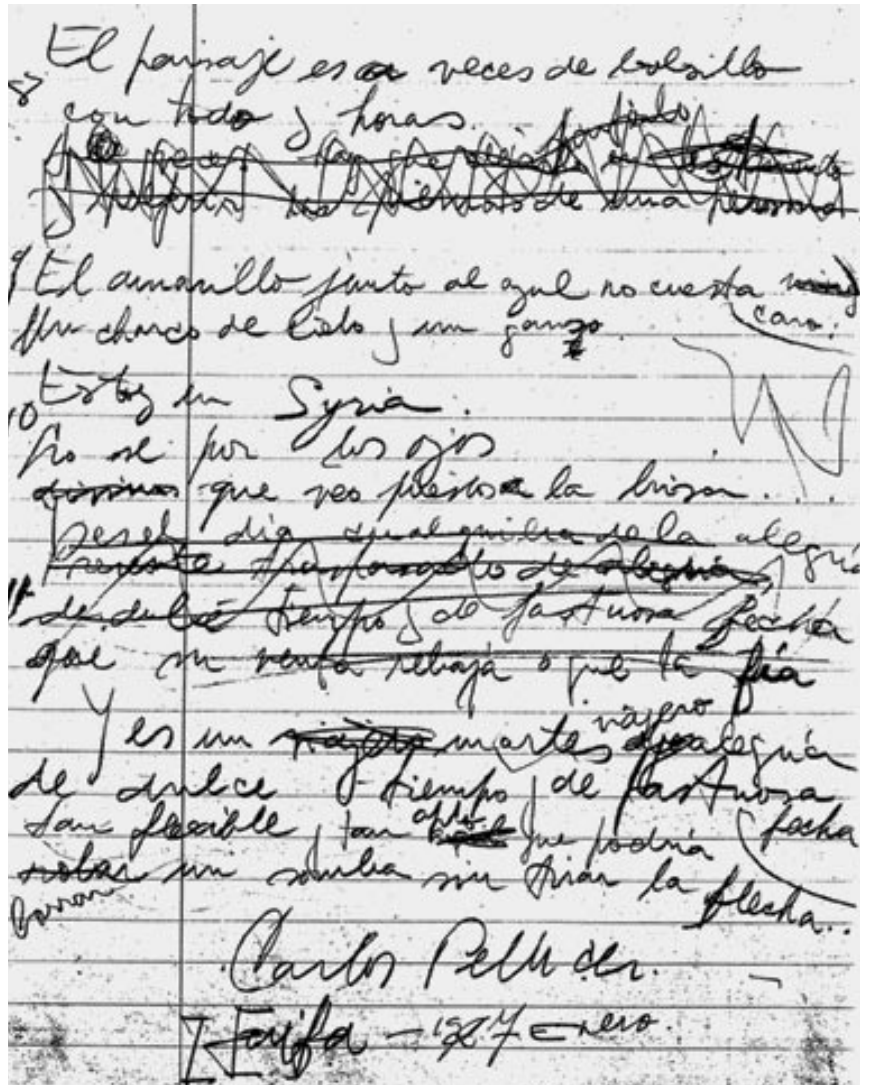 El paisaje es a veces de bolsillo
8
con todo y horas.
y a veces hay que
y de una persona
9 El amarillo junto al azul no cuesta
caro.
Un charco de cielo y un ganso
10 Estoy en Syria.
Lo sé por los ojos
que veo puestos a la brisa...
día cualquiera de la alegría
traspasado de alegría
11 de dulce tiempo y de fastuosa fecha
que su venta rebaja o que la fía
Y es un viajero martes de alegría
de dulce tiempo y de fastuosa
fecha
tan flexible, tan apto que podría
robar un sin tirar la flecha...
Borrar
Carlos Pellicer.
Haifa - 1927 - enero.